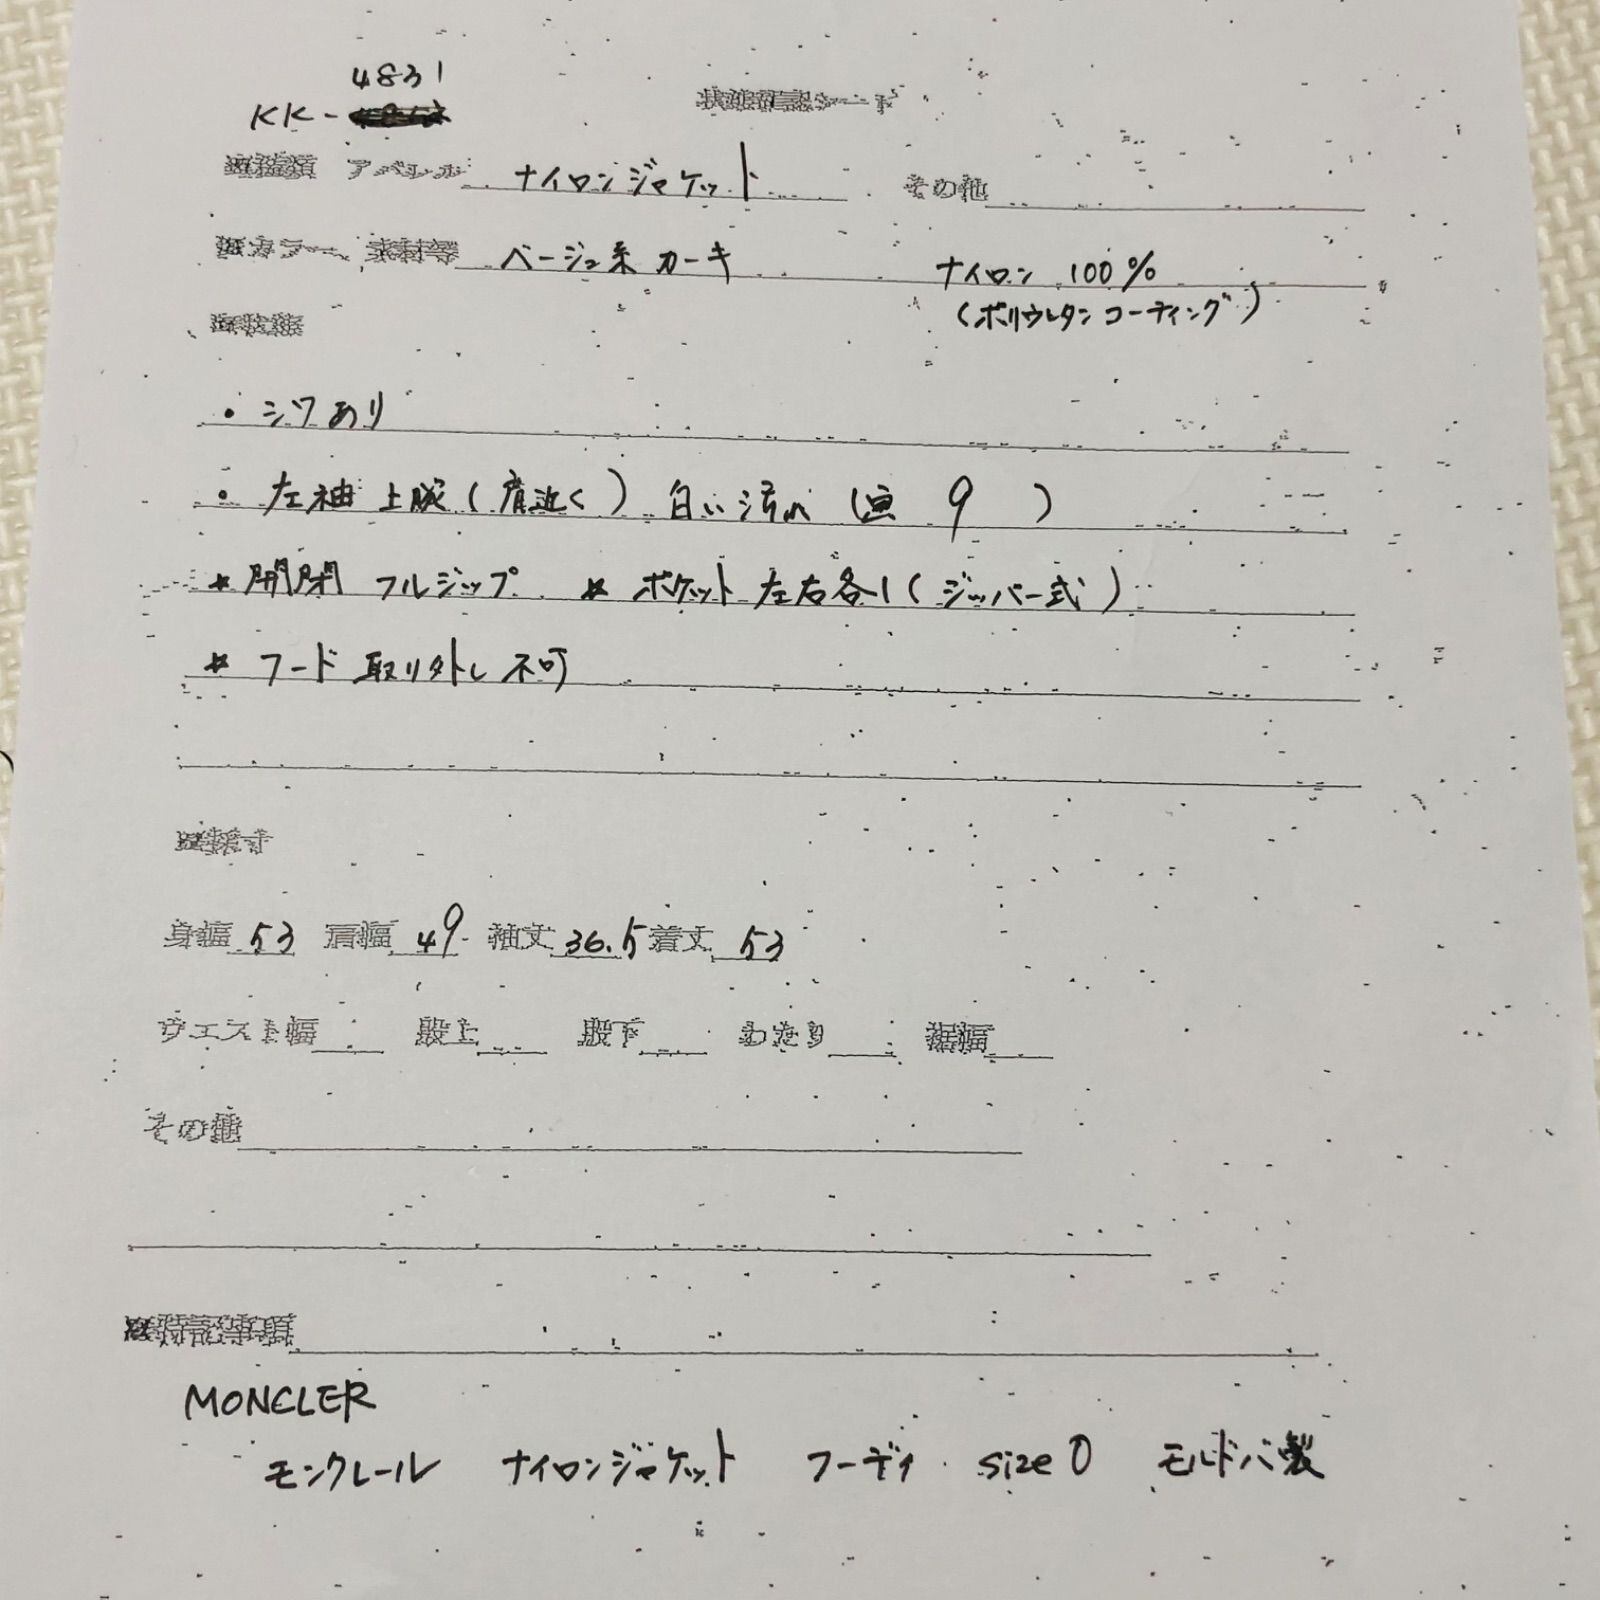 4831
KK-
状態確認シート
アパレル ナイロンジャケット その他
カラー、素材等 ベージュ系カーキ ナイロン 100%
(ポリウレタンコーティング)
状態
・シワあり
・左袖 上腕(肩近く) 白い汚れ (画 9 )
* 開閉 フルジップ * ポケット左右各1(ジッパー式)
* フード取り外し不可
採寸
身幅 53 肩幅 49 袖丈 36.5 着丈 53
ウエスト幅 股上 股下 わたり 裾幅
その他
特記事項
MONCLER
モンクレール ナイロンジャケット フーディ size 0 モルドバ製